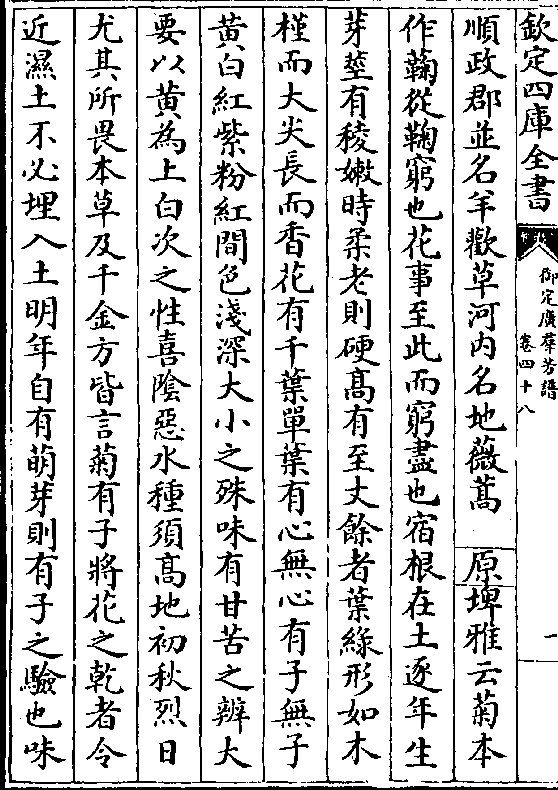 欽定四庫全書
御定廣羣芳譜
卷四十八
一
順政郡並名羊歡草河内名地薇蒿 原埤雅云菊本
作蘜從鞠窮也花事至此而窮盡也宿根在土逐年生
芽莖有稜嫩時柔老則硬髙有至丈餘者葉綠形如木
槿而大尖長而香花有千葉單葉有心無心有子無子
黄白紅紫粉紅間色淺深大小之殊味有甘苦之辨大
要以黄為上白次之性喜陰惡水種須髙地初秋烈日
尤其所畏本草及千金方皆言菊有子將花之乾者令
近濕土不必埋入土明年自有萌芽則有子之驗也味